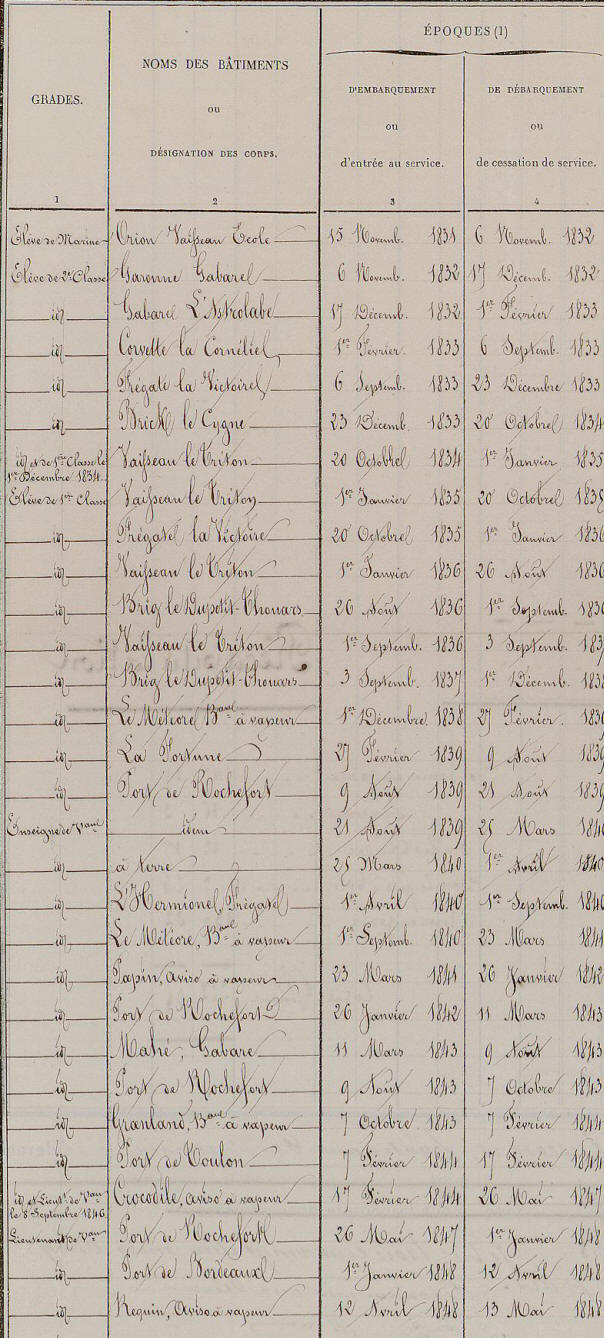 ÉPOQUES (1)
GRADES.
NOMS DES BÂTIMENTS
ou
DÉSIGNATION DES CORPS.
D'EMBARQUEMENT
ou
d'entrée au service.
DE DÉBARQUEMENT
ou
de cessation de service.
1 2 3 4
Elève de Marine Orion Vaisseau Ecole 15 Novemb. 1831 6 Novemb. 1832
Elève de 2e Classe Garonne Gabare 6 Novemb. 1832 17 Décemb. 1832
id Gabare L'Astrolabe 17 Décemb. 1832 1er Février 1833
id Corvette la Cornélie 1er Février 1833 6 Septemb. 1833
id Frégate la Victoire 6 Septemb. 1833 23 Décembre 1833
id Brick le Cygne 23 Décemb. 1833 20 Octobre 1834
id et de 1ère Classe le
1er Décembre 1834 Vaisseau le Triton 20 Octobre 1834 1er Janvier 1835
Elève de 1ère Classe Vaisseau le Triton 1er Janvier 1835 20 Octobre 1835
id Frégate la Victoire 20 Octobre 1835 1er Janvier 1836
id Vaisseau le Triton 1er Janvier 1836 26 Aout 1836
id Brig le Dupetit-Thouars 26 Aout 1836 1er Septemb. 1836
id Vaisseau le Triton 1er Septemb. 1836 3 Septemb. 183
id Brig le Dupetit-Thouars 3 Septemb. 1837 1er Décemb. 183
id Le Météore Bau à vapeur 1er Décembre 1838 27 Février. 183
id La Fortune 27 Février 1839 9 Aout 1839
id Port de Rochefort 9 Aout 1839 21 Aout 1839
Enseigne de Vau idem 21 Aout 1839 25 Mars 1840
id à terre 25 Mars 1840 1er Avril 1840
id L'Hermione, Frégate 1er Avril 1840 1er Septemb. 1840
id Le Météore, Bau à vapeur 1er Septemb. 1840 23 Mars 1841
id Papin, Aviso à vapeur 23 Mars 1841 26 Janvier 1842
id Port de Rochefort 26 Janvier 1842 11 Mars 1843
id Mahé, Gabare 11 Mars 1843 9 Aout 1843
id Port de Rochefort 9 Aout 1843 7 Octobre 1843
id Grœnland, Bau à vapeur 7 Octobre 1843 7 Février 1844
id Port de Toulon 7 Février 1844 17 Février 1844
id et Lieutt de Vau
le 8 Septembre 1846 Crocodile, aviso à vapeur 17 Février 1844 26 Mai 1847
Lieutenant de Vau Port de Rochefort 26 Mai 1847 1er Janvier 1848
id Port de Bordeaux 1er Janvier 1848 12 Avril 1848
id Requin, Aviso à vapeur 12 Avril 1848 13 Mai 1848